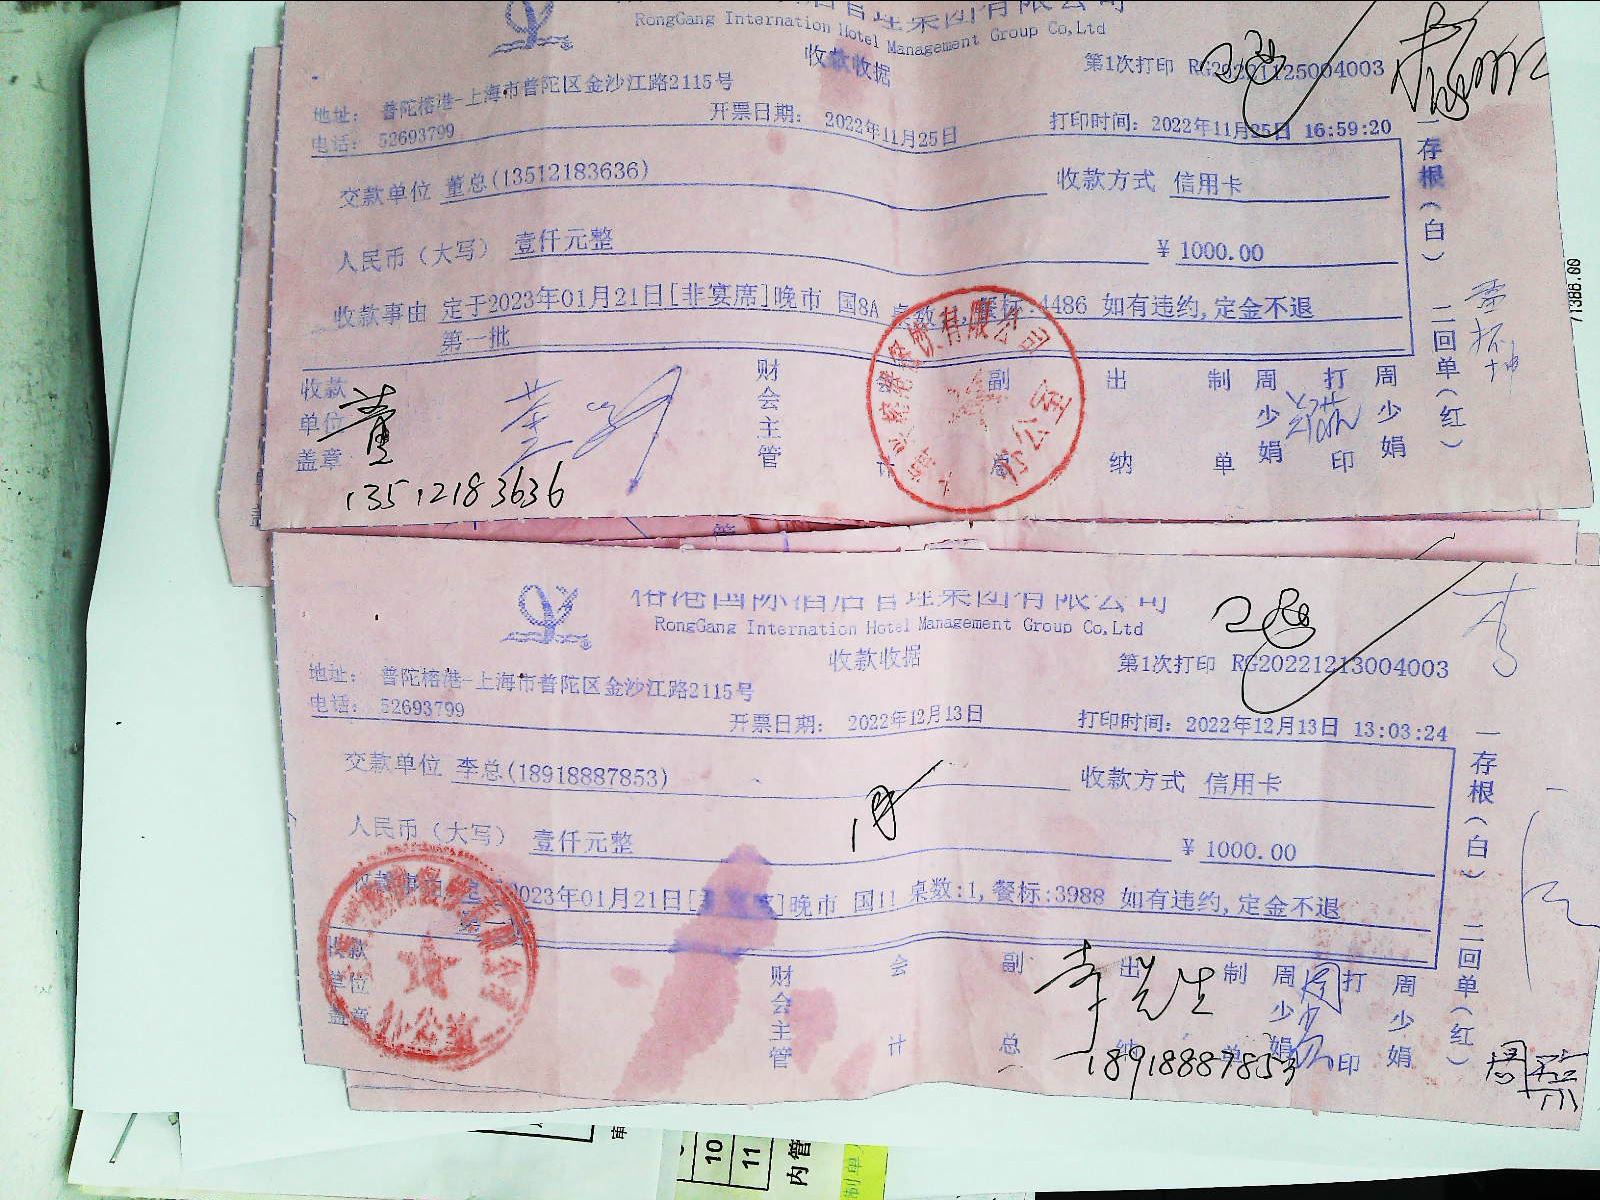 RongGang Internation Hotel Management Group Co,Ltd
收款收据
第1次打印 RG20221125004003
地址： 普陀榕港-上海市普陀区金沙江路2115号
电话： 52693799
开票日期： 2022年11月25日
打印时间：2022年11月25日 16:59:20
交款单位 董总(13512183636)
收款方式 信用卡
人民币（大写） 壹仟元整
￥ 1000.00
收款事由 定于2023年01月21日[非宴席]晚市 国8A 桌数 餐标:4486 如有违约,定金不退
第一批
收款单位盖章
财会主管
副总
出纳
制单
周少娟
打印
周少娟
一存根（白） 二回单（红）
董
13512183636
办公室
71386.00
榕港国际酒店管理集团有限公司
RongGang Internation Hotel Management Group Co,Ltd
收款收据
第1次打印 RG20221213004003
地址： 普陀榕港-上海市普陀区金沙江路2115号
电话： 52693799
开票日期： 2022年12月13日
打印时间：2022年12月13日 13:03:24
交款单位 李总(18918887853)
收款方式 信用卡
人民币（大写） 壹仟元整
￥ 1000.00
2023年01月21日 晚市 国11 桌数:1,餐标:3988 如有违约,定金不退
收款单位盖章
财会主管
会计
副总
出纳
制单
周少娟
打印
周少娟
一存根（白） 二回单（红）
李先生
18918887853
办公室
10
11
内管
制单